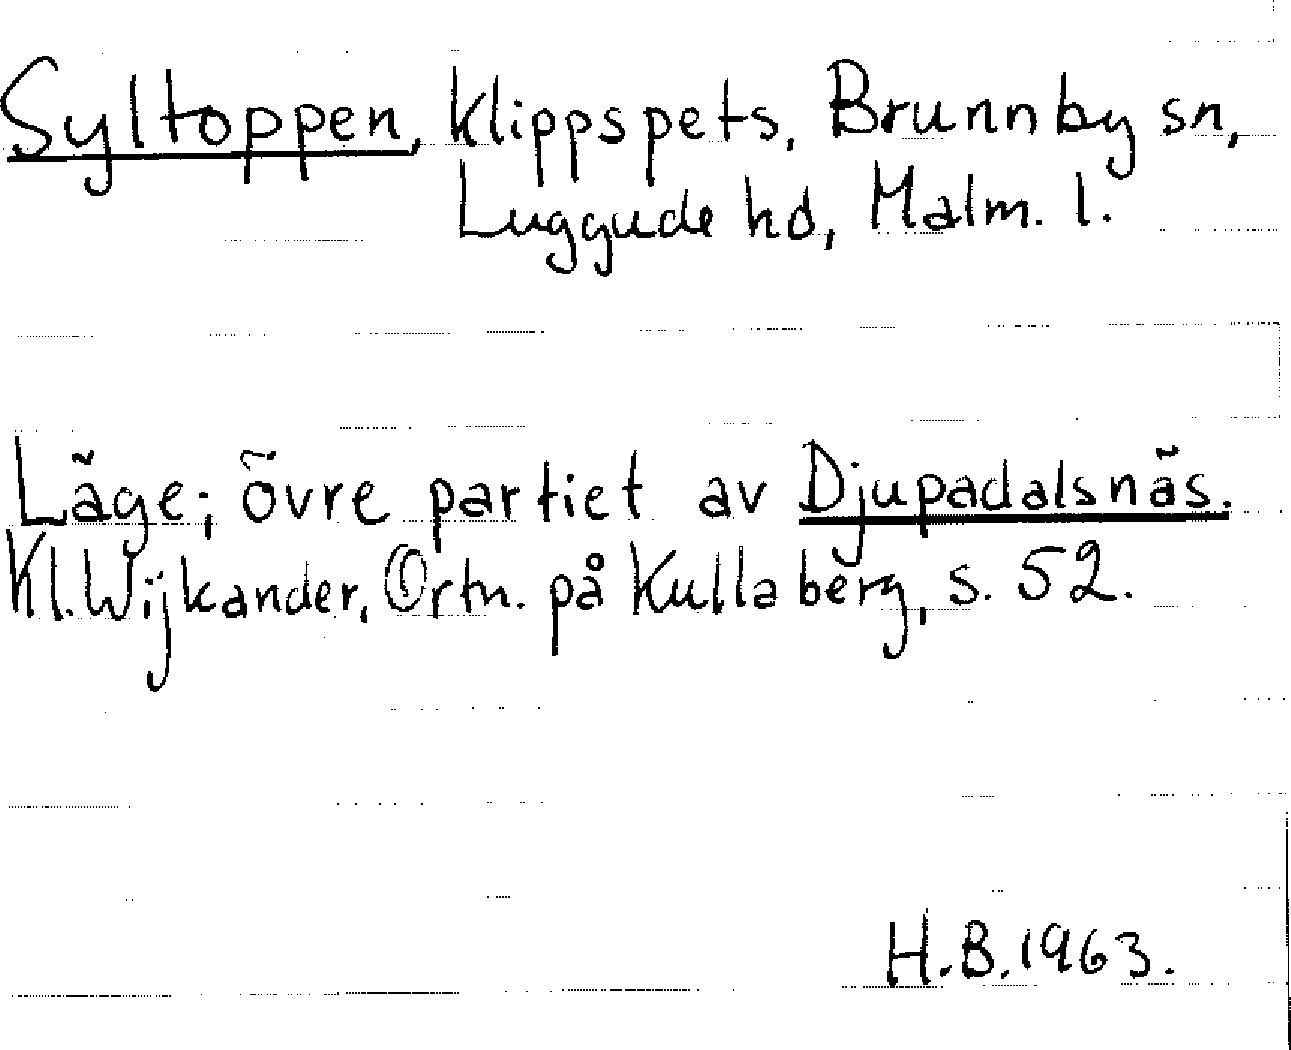 Syltoppen, klippspets, Brunnby sn,
Luggude hd, Malm. l.
Läge; övre partiet av Djupadalsnäs.
Kl. Wijkander, Ortn. på Kullaberg, s. 52.
H.B. 1963.